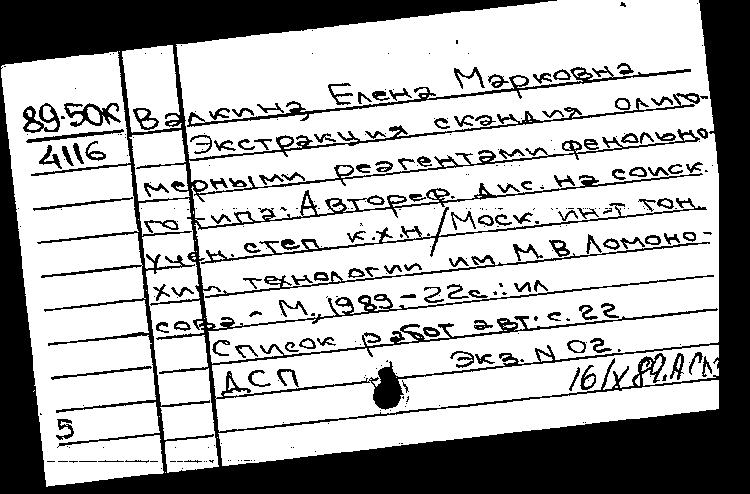 89-50к
4116
Валкина, Елена Марковна.
Экстракция скандия олиго-
мерными реагентами фенольно-
го типа: Автореф. дис. на соиск.
учен. степ. к.х.н. / Моск. ин-т тон.
хим. технологии им. М.В. Ломоно-
сова. - М., 1989. - 22с.: ил
Список работ авт.: с. 22.
ДСП Экз. N 02.
16/X 89.
5